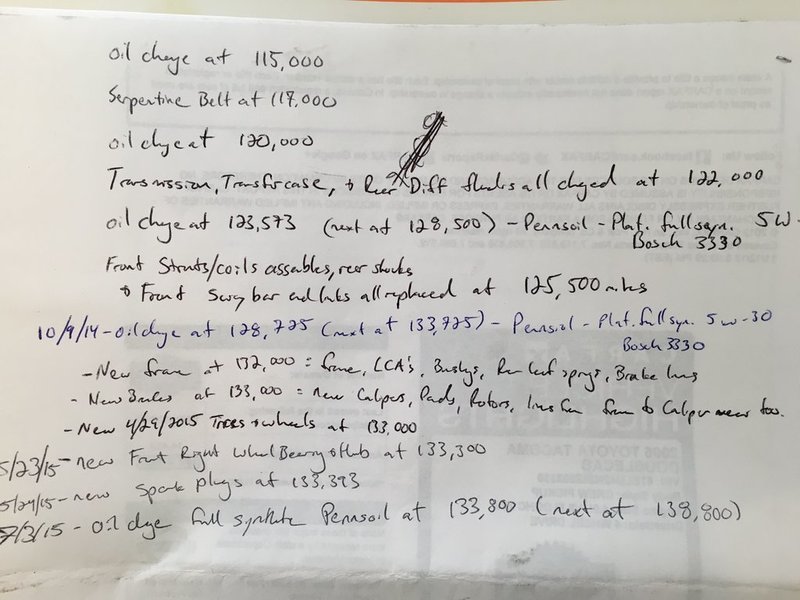 oil change at 115,000
Serpentine Belt at 117,000
oil change at 120,000
Transmission, Transfer case, + Rear Diff fluids all changed at 122,000
oil change at 123,573 (next at 128,500) - Pennsoil - Plat. full syn. 5W-
Bosch 3330
Front Struts/coils assembles, rear shocks
+ Front Sway bar end links all replaced at 125,500 miles
10/9/14 - oil change at 128,725 (next at 133,725) - Pennsoil - Plat. full syn. 5w-30
Bosch 3330
- New frame at 132,000 = frame, LCA's, Bushings, Rear leaf springs, Brake lines
- New Brakes at 133,000 = new Calipers, Pads, Rotors, lines from frame to Caliper near too.
- New 4/29/2015 Tires + wheels at 133,000
5/23/15 - new Front Right Wheel Bearing + Hub at 133,300
5/24/15 - new Spark plugs at 133,393
7/3/15 - oil change full synthetic Pennsoil at 133,800 (next at 138,800)
2006 TOYOTA TACOMA